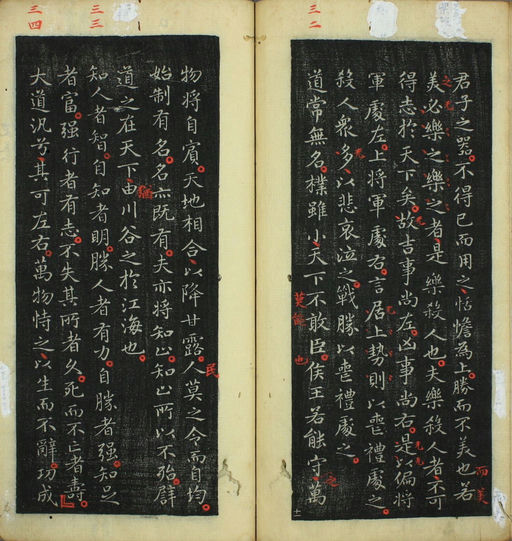 三二
君子之器不得已而用之恬憺為上勝而不美也若
美必樂之樂之者是樂殺人也夫樂殺人者不可
得志於天下矣故吉事尚左凶事尚右是以偏將
軍處左上將軍處右言居上勢則以喪禮處之
殺人衆多以悲哀泣之戰勝以喪禮處之
道常無名樸雖小天下不敢臣侯王若能守萬
而美
之
莫能
也
三三
物將自賓天地相合以降甘露人莫之令而自均
始制有名名亦既有夫亦將知止知止所以不殆譬
道之在天下由川谷之於江海也
知人者智自知者明勝人者有力自勝者強知足
者富強行者有志不失其所者久死而不亡者壽
民
猶
三四
大道汎兮其可左右萬物恃之以生而不辭功成